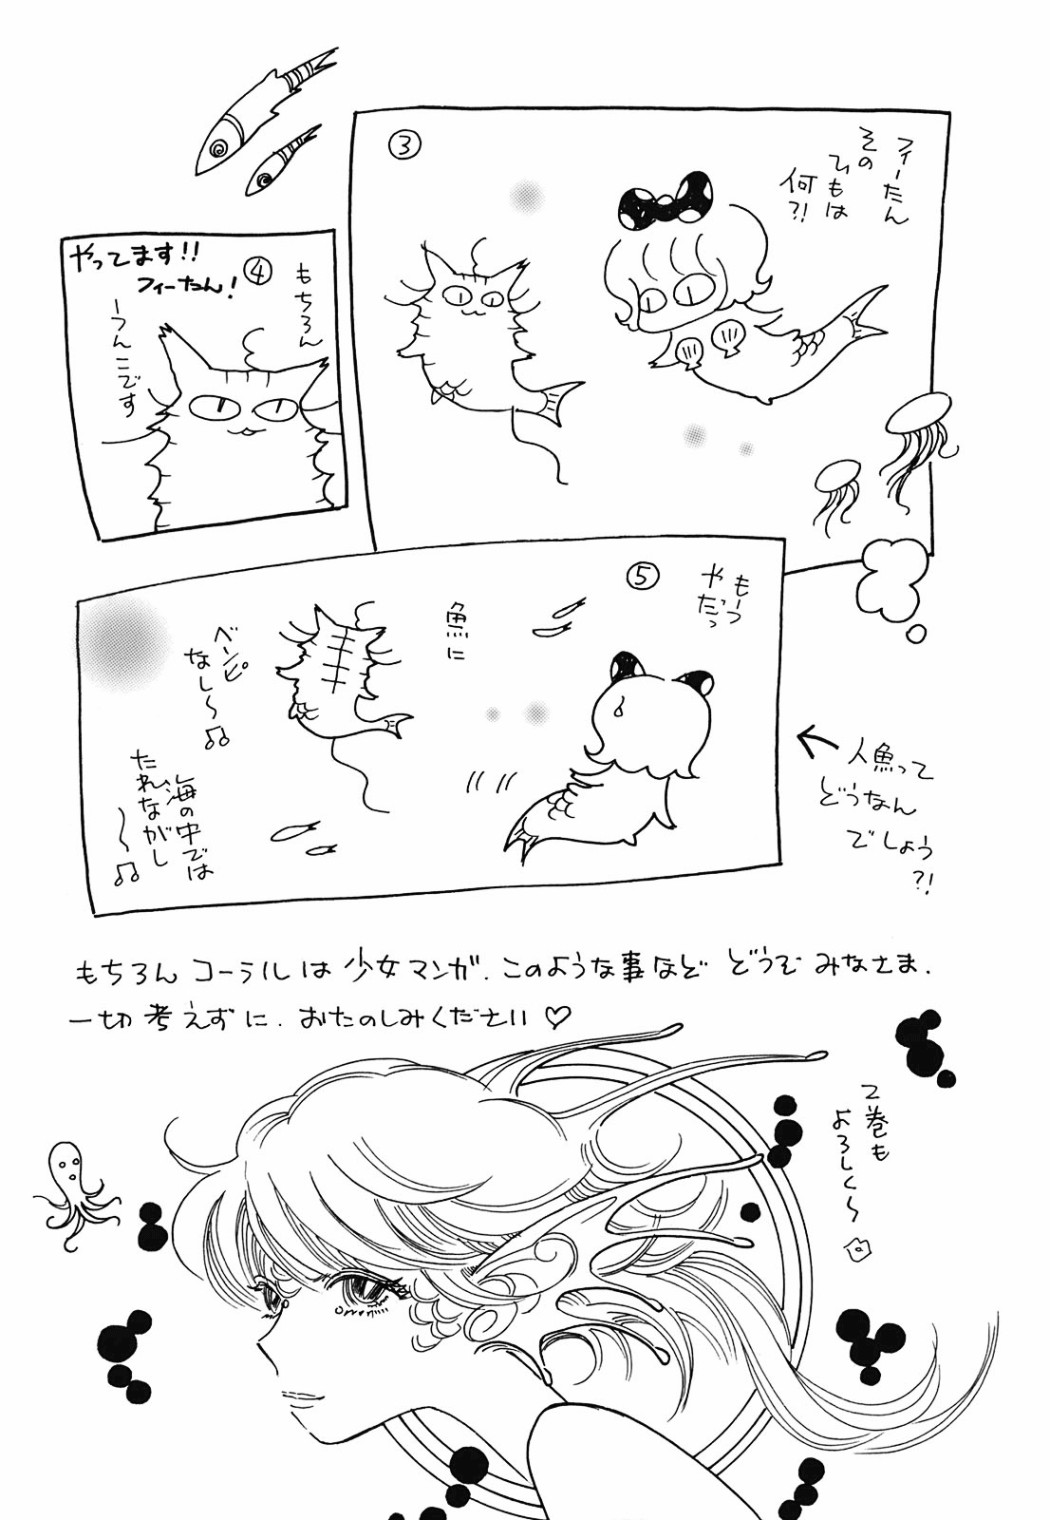 ③
フィーたん
その
ひもは
何?!
④
やってます!!
フィーたん!
もちろん
ーうんこです
⑤
もーっ
やだっ
魚に
ベンピ
なし〜♫
海の中では
たれながし
〜♫
人魚って
どうなん
でしょう
?!
もちろん コーラルは 少女マンガ. このような事など どうぞ みなさま.
一切 考えずに. おたのしみください♡
2巻も
よろしく〜